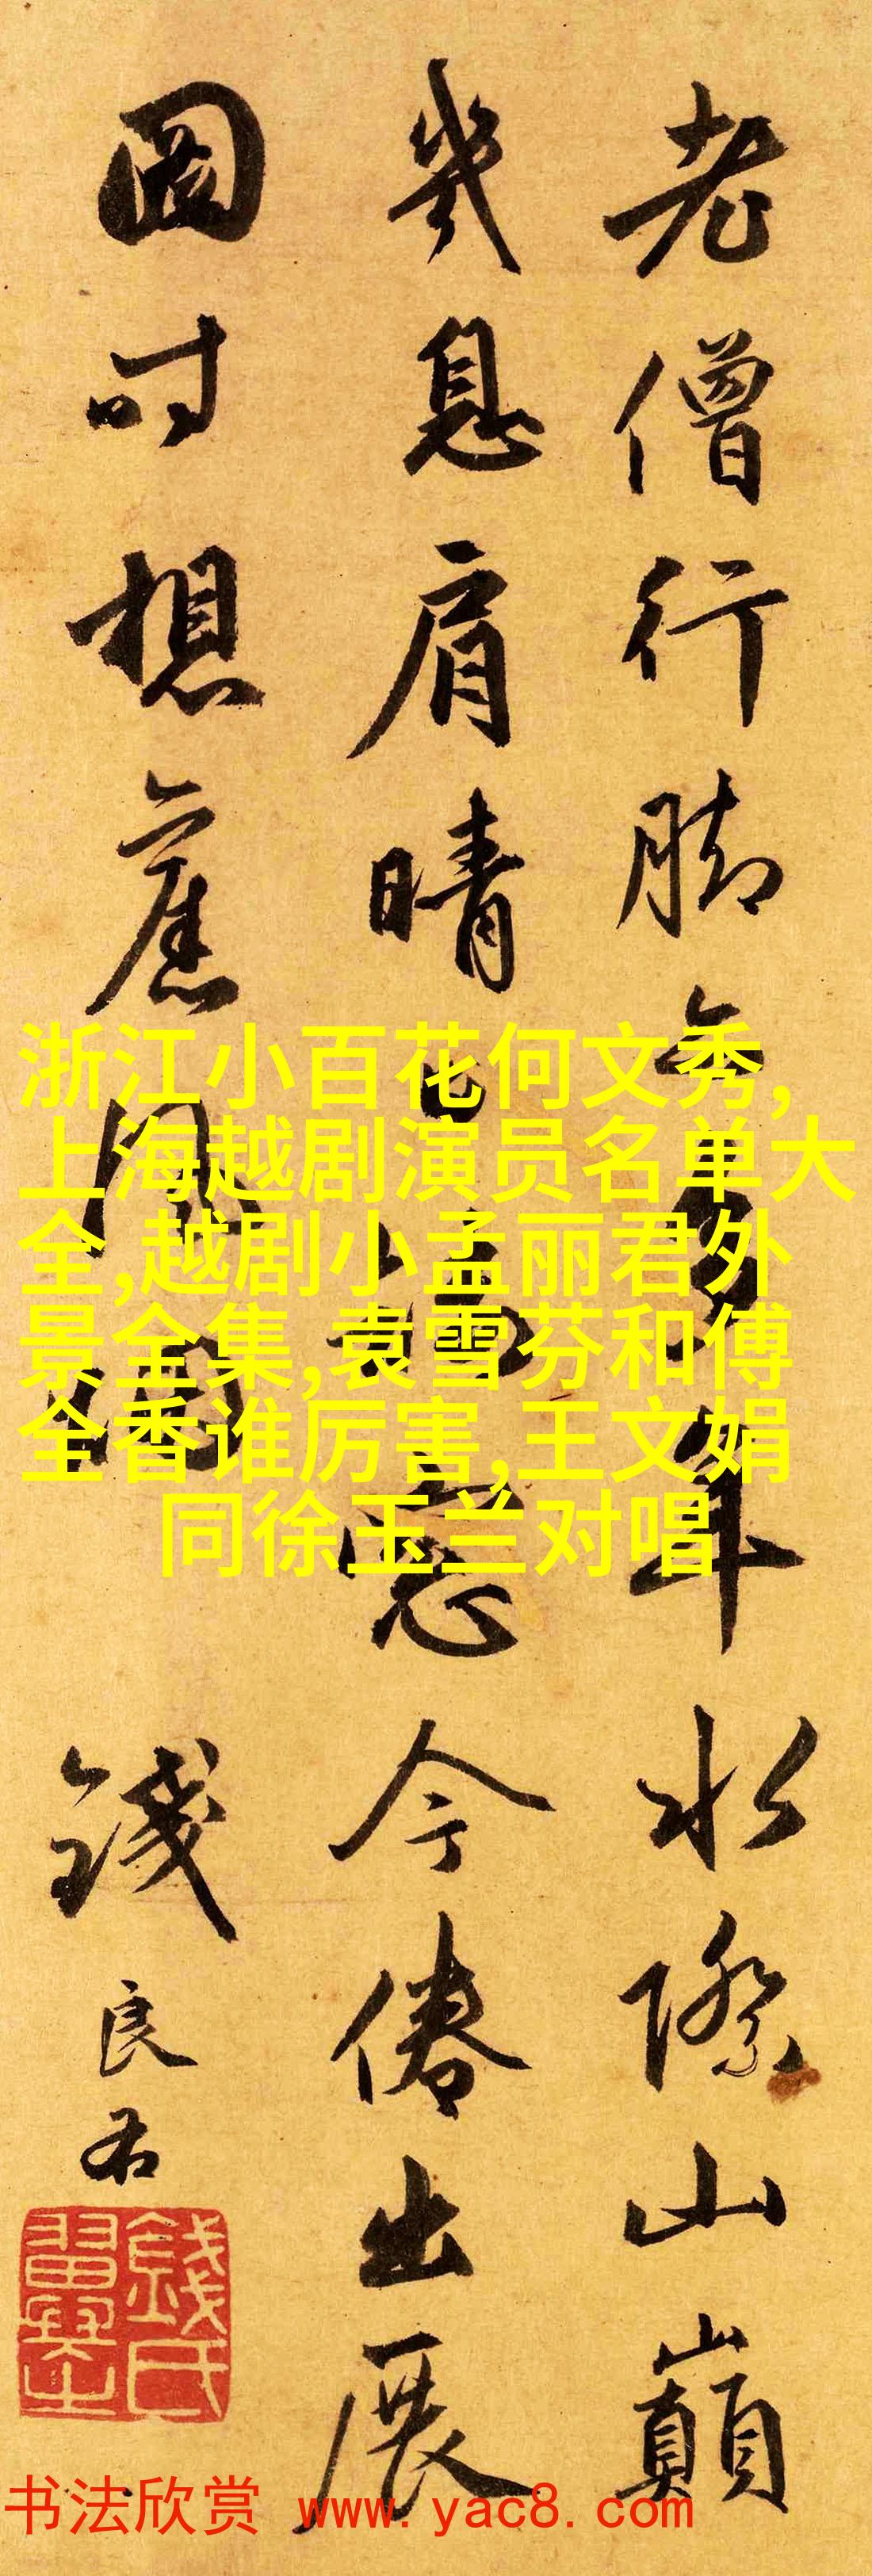 老僧行脚多年水際山巔
幾息肩晴窓今倦出展
圖时想舊
錢良右
錢氏翼之
浙江小百花何文秀,
上海越剧演员名单大
全,越剧小孟丽君外
景全集,袁雪芬和傅
全香谁厉害,王文娟
同徐玉兰对唱
书法欣赏 www.yac8.com